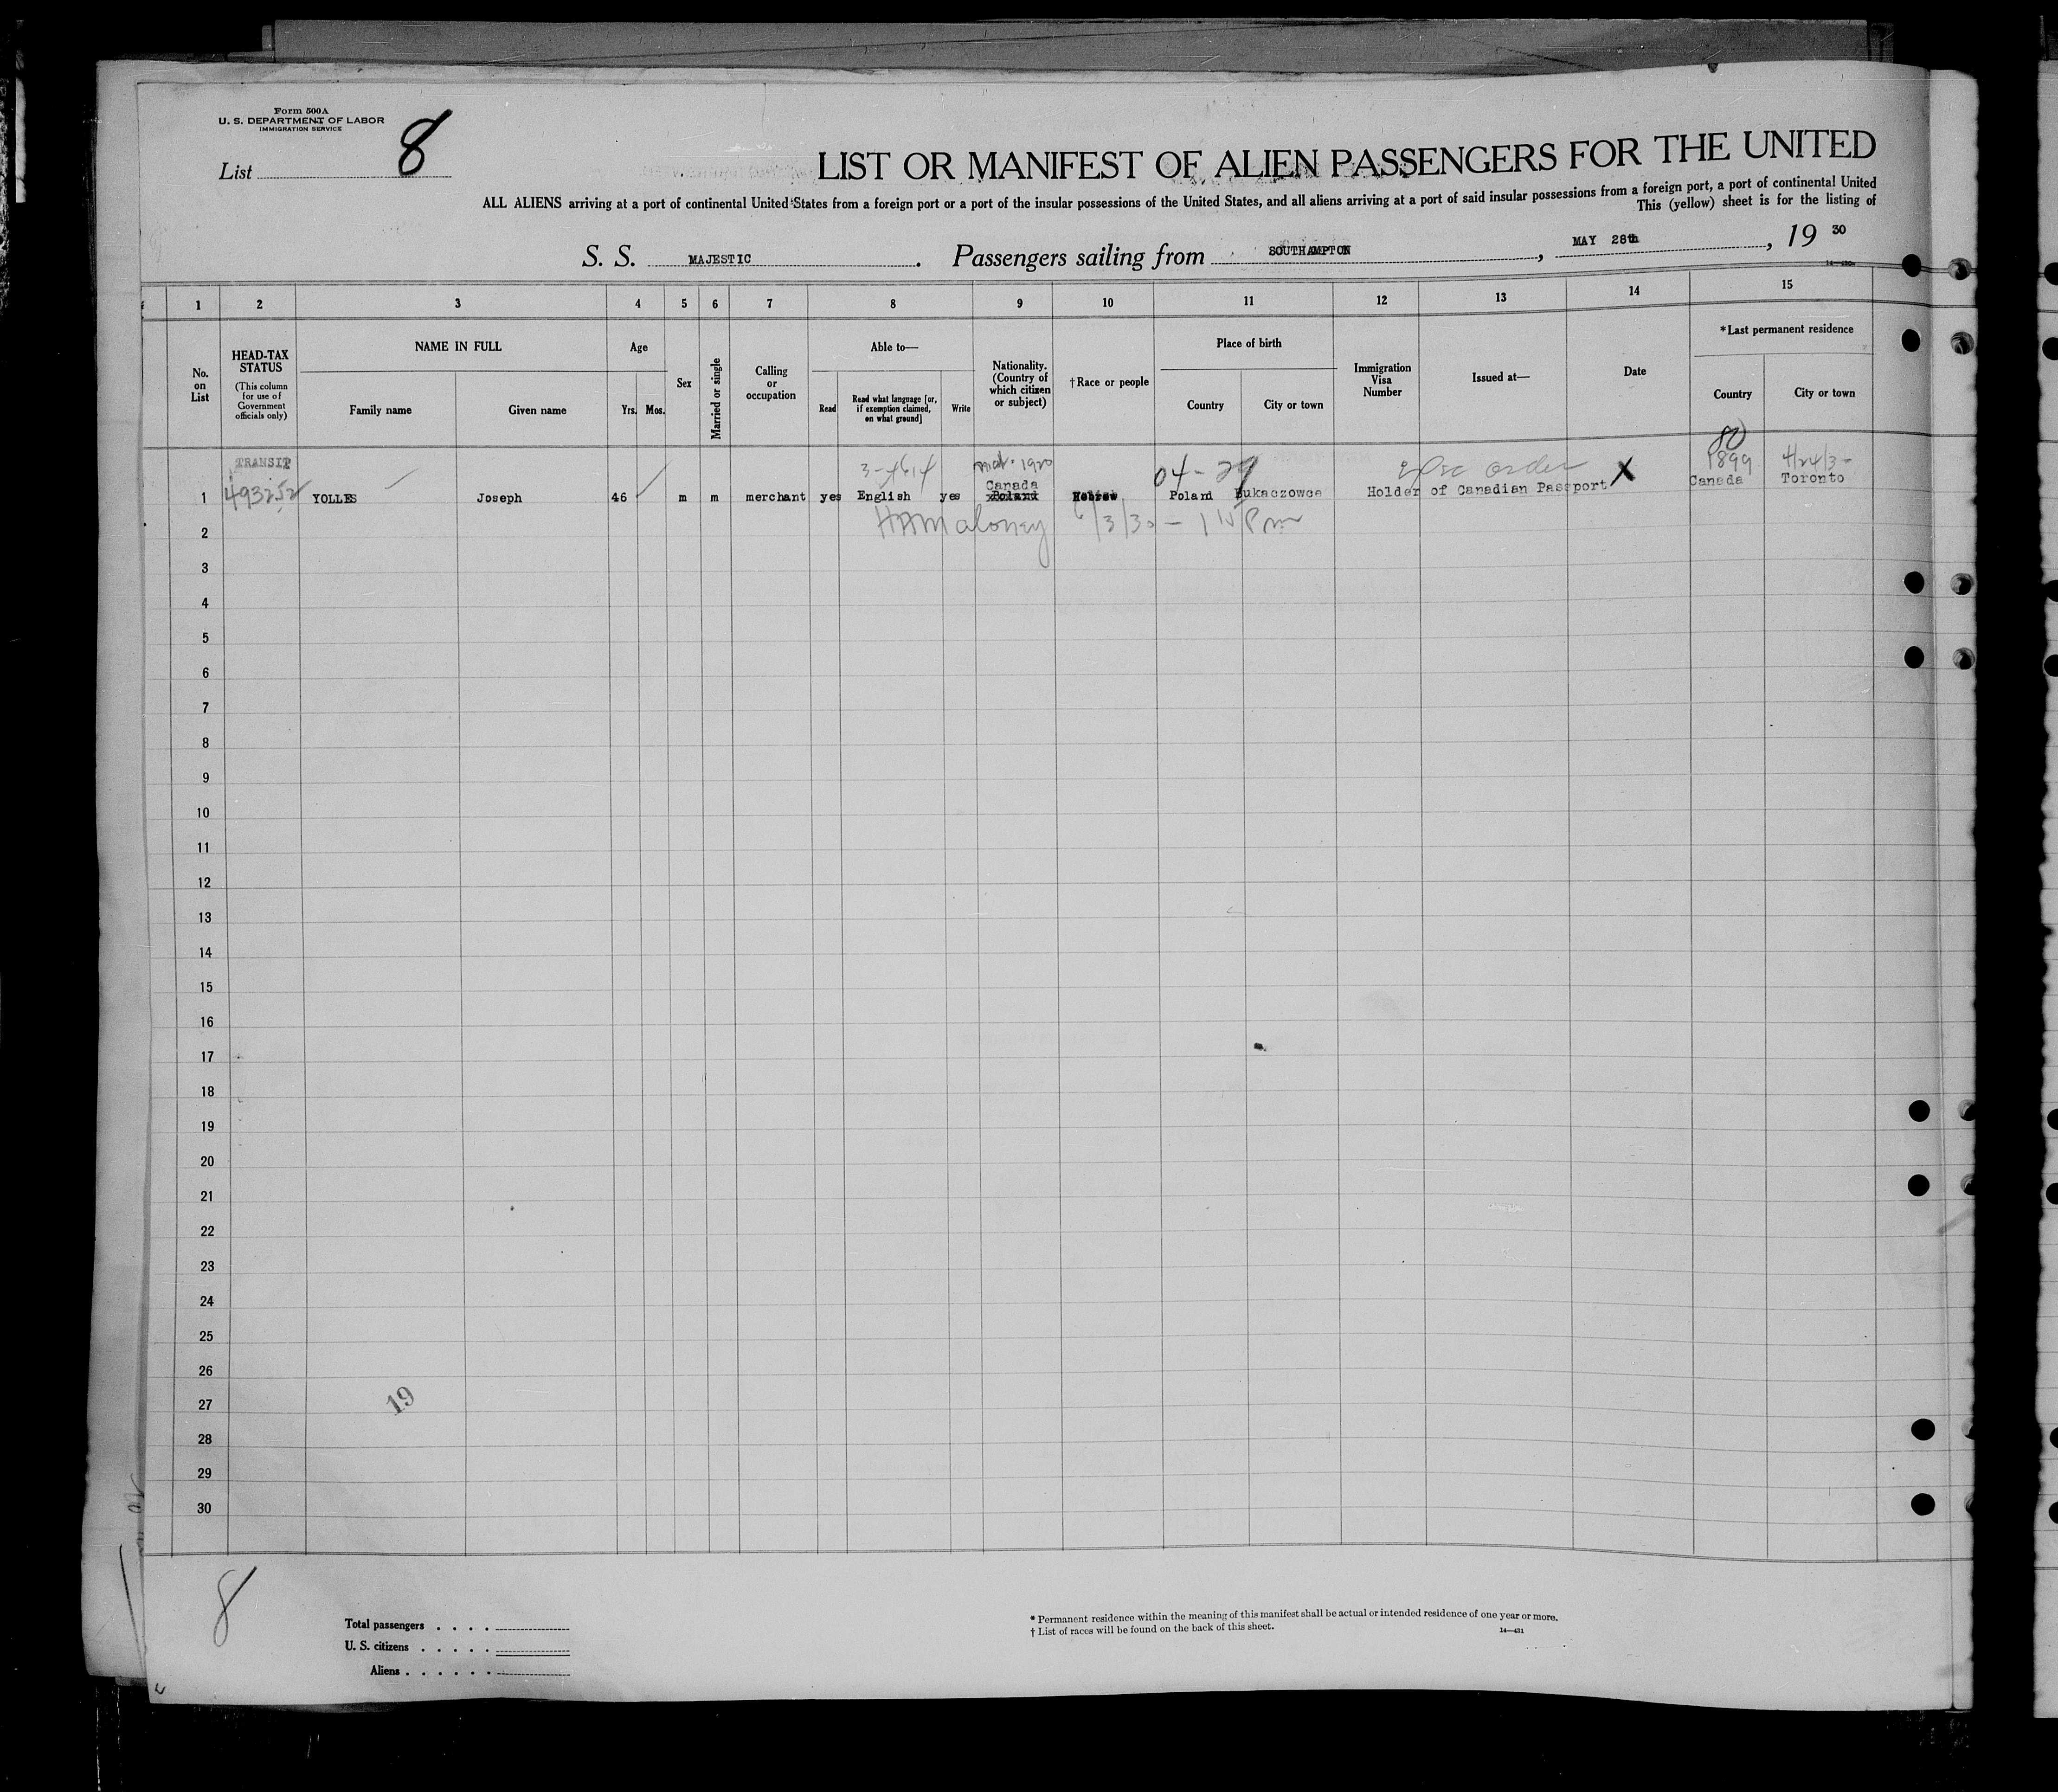 Form 500A
U. S. DEPARTMENT OF LABOR
IMMIGRATION SERVICE
List 8
LIST OR MANIFEST OF ALIEN PASSENGERS FOR THE UNITED
ALL ALIENS arriving at a port of continental United States from a foreign port or a port of the insular possessions of the United States, and all aliens arriving at a port of said insular possessions from a foreign port, a port of continental United
This (yellow) sheet is for the listing of
S. S. MAJESTIC. Passengers sailing from SOUTHAMPTON, MAY 28th, 19 30
1 2 3 4 5 6 7 8 9 10 11 12 13 14 15
No. on List
HEAD-TAX STATUS
(This column for use of Government officials only)
NAME IN FULL
Family name Given name
Age
Yrs. Mos.
Sex
Married or single
Calling or occupation
Able to—
Read
Read what language [or, if exemption claimed, on what ground]
Write
Nationality. (Country of which citizen or subject)
†Race or people
Place of birth
Country City or town
Immigration Visa Number
Issued at—
Date
*Last permanent residence
Country City or town
80
TRANSIT 1920 04-29 order X 1899
Canada
1 493252 YOLLES Joseph 46 m m merchant yes English yes Poland Hebrew Poland Bukaczowce Holder of Canadian Passport Canada Toronto
2 HAMaloney 6/3/30 - Pm
3
4
5
6
7
8
9
10
11
12
13
14
15
16
17
18
19
20
21
22
23
24
25
26
27
28
29
30
19
8
Total passengers
U. S. citizens
Aliens
* Permanent residence within the meaning of this manifest shall be actual or intended residence of one year or more.
† List of races will be found on the back of this sheet.
14—431